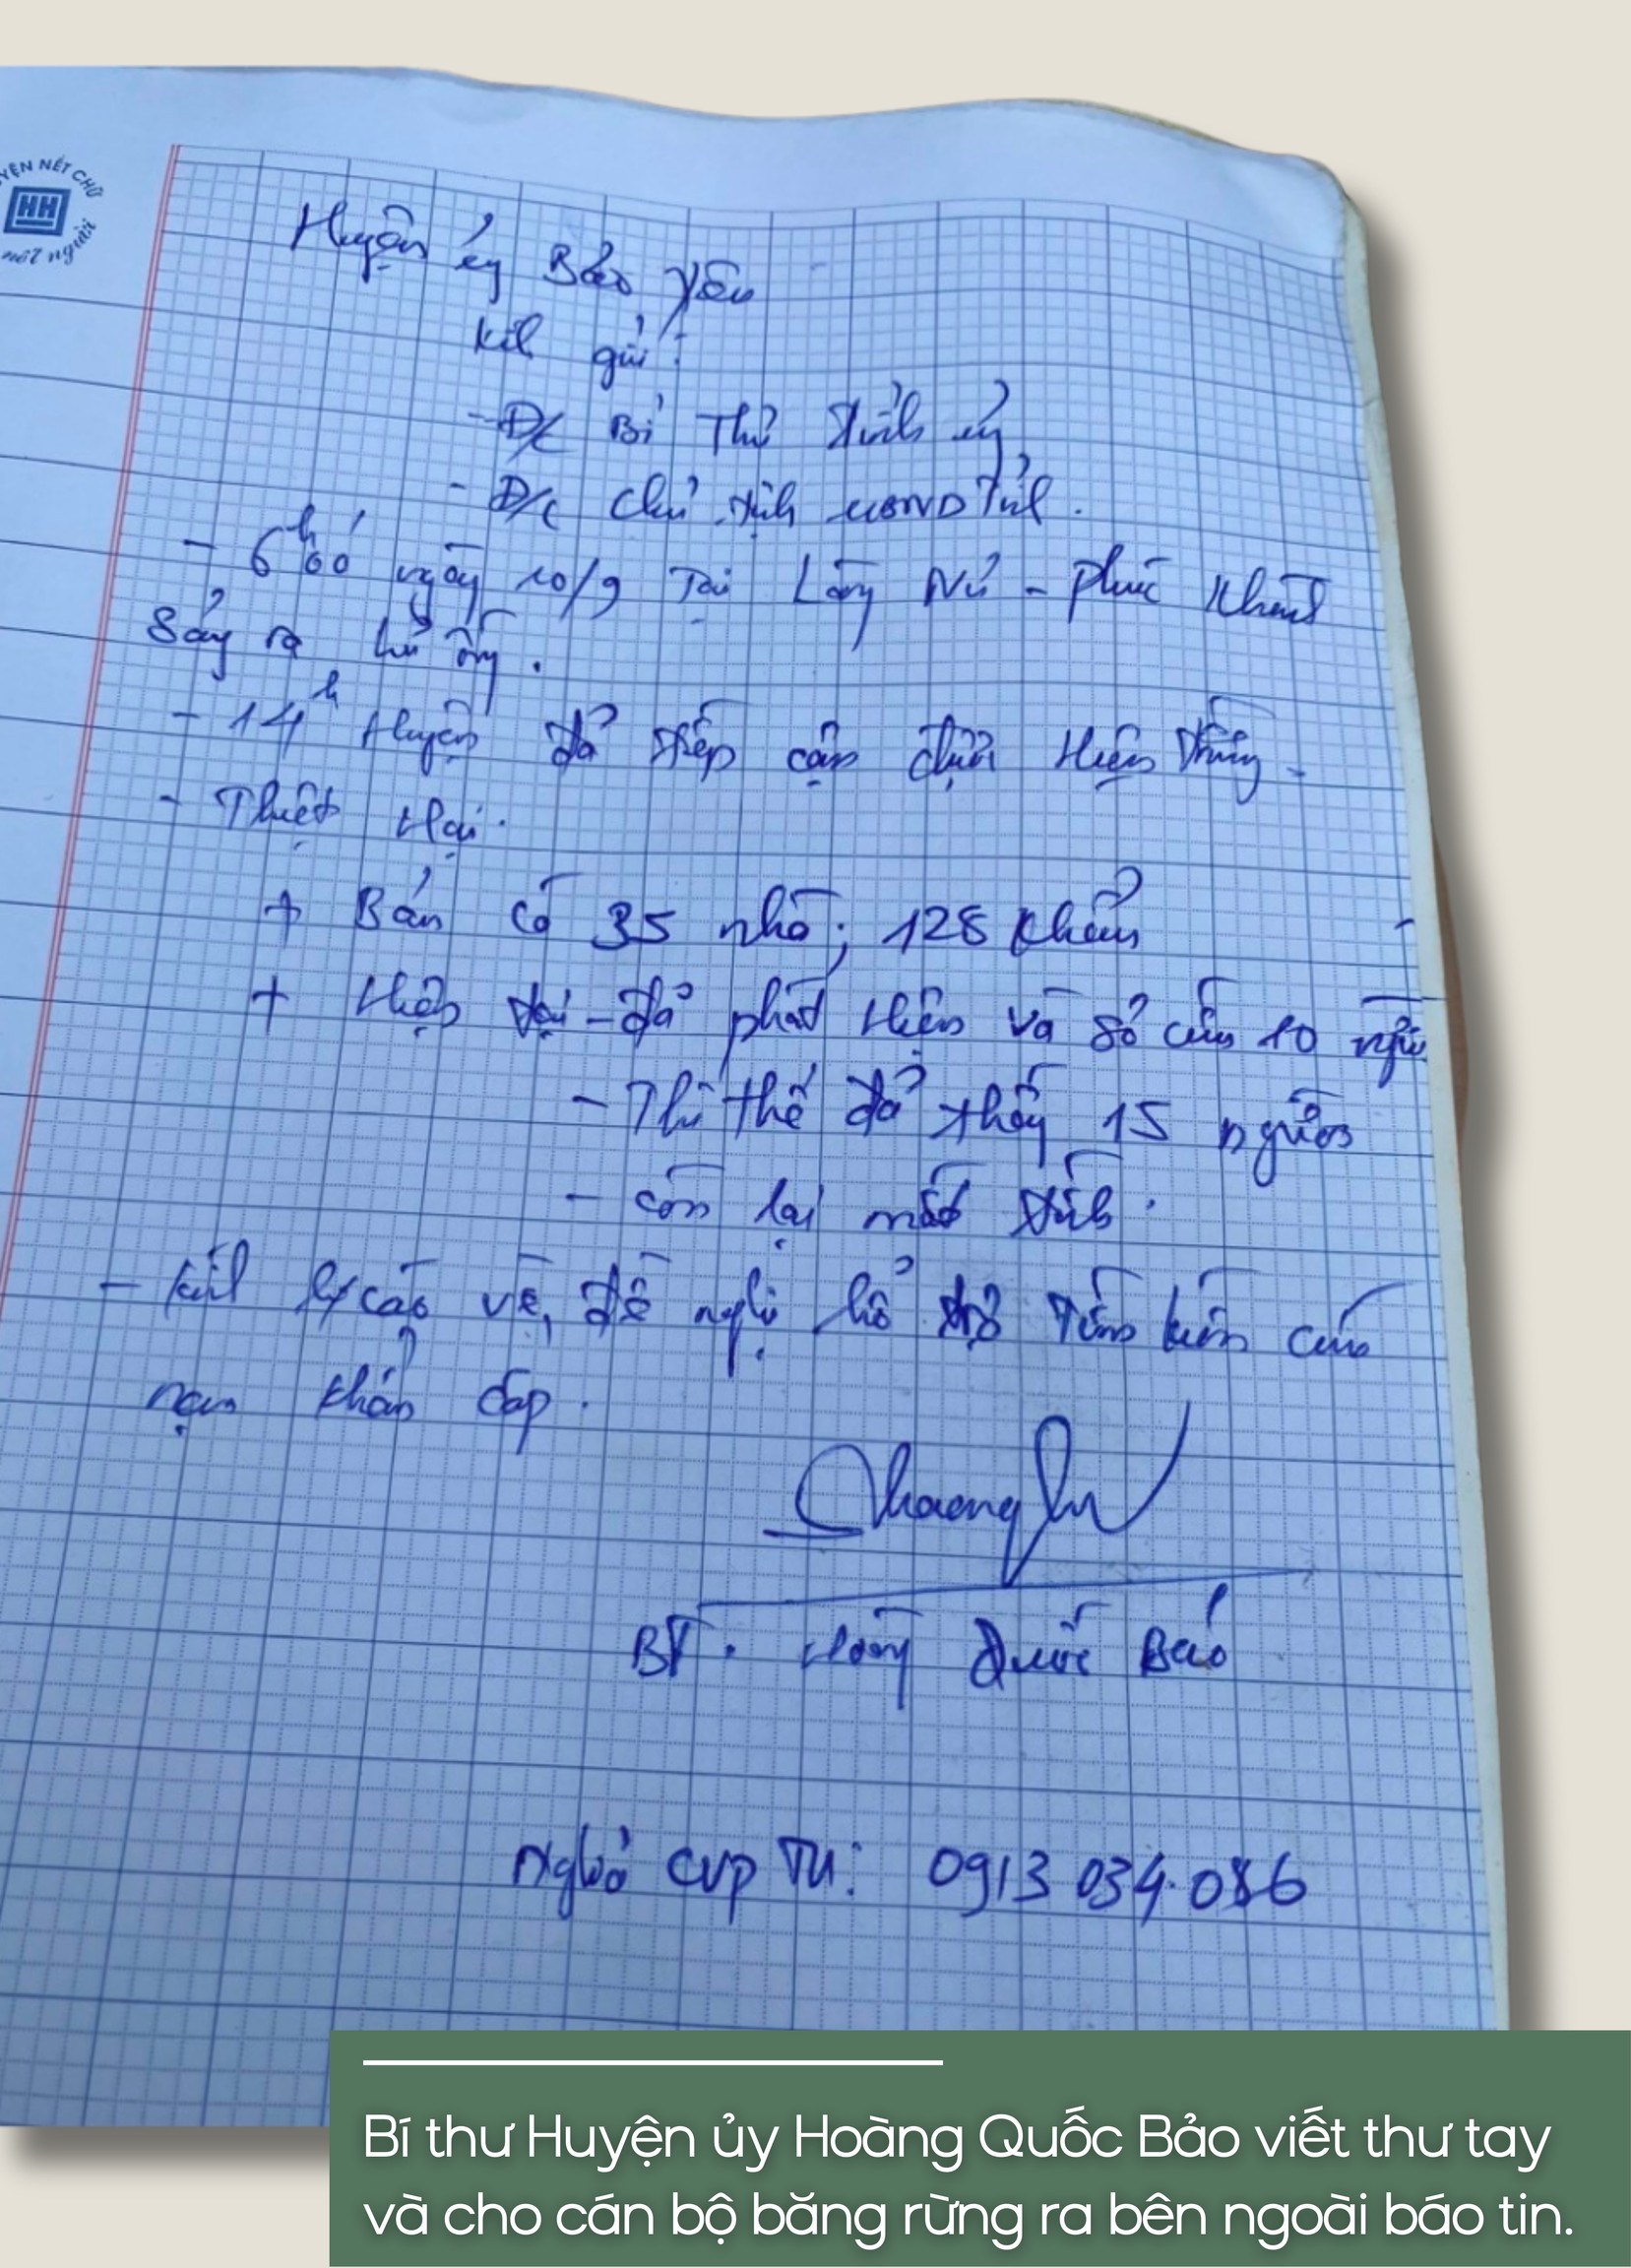 YỆN NÉT CHỮ
HH
nét người
Huyện ủy Bảo Yên
Kính gửi:
- Đ/c Bí Thư Tỉnh ủy
- Đ/c Chủ tịch UBND Tỉnh.
- 6h00 ngày 10/9 Tại Làng Nủ - Phúc Khánh
Sảy ra lũ ống.
- 14h Huyện đã tiếp cận được Hiện Trường -
- Thiệt Hại.
+ Bản có 35 nhà; 128 khẩu
+ Hiện tại - đã phát hiện và sơ cứu 10 người
- Thi thể đã thấy 15 người
- còn lại mất tích.
- Kính b/cáo về, đề nghị hỗ trợ tìm kiếm cứu
nạn khẩn cấp.
BT. Hoàng Quốc Bảo
Nghĩa CVP TU: 0913 034.086
Bí thư Huyện ủy Hoàng Quốc Bảo viết thư tay
và cho cán bộ băng rừng ra bên ngoài báo tin.